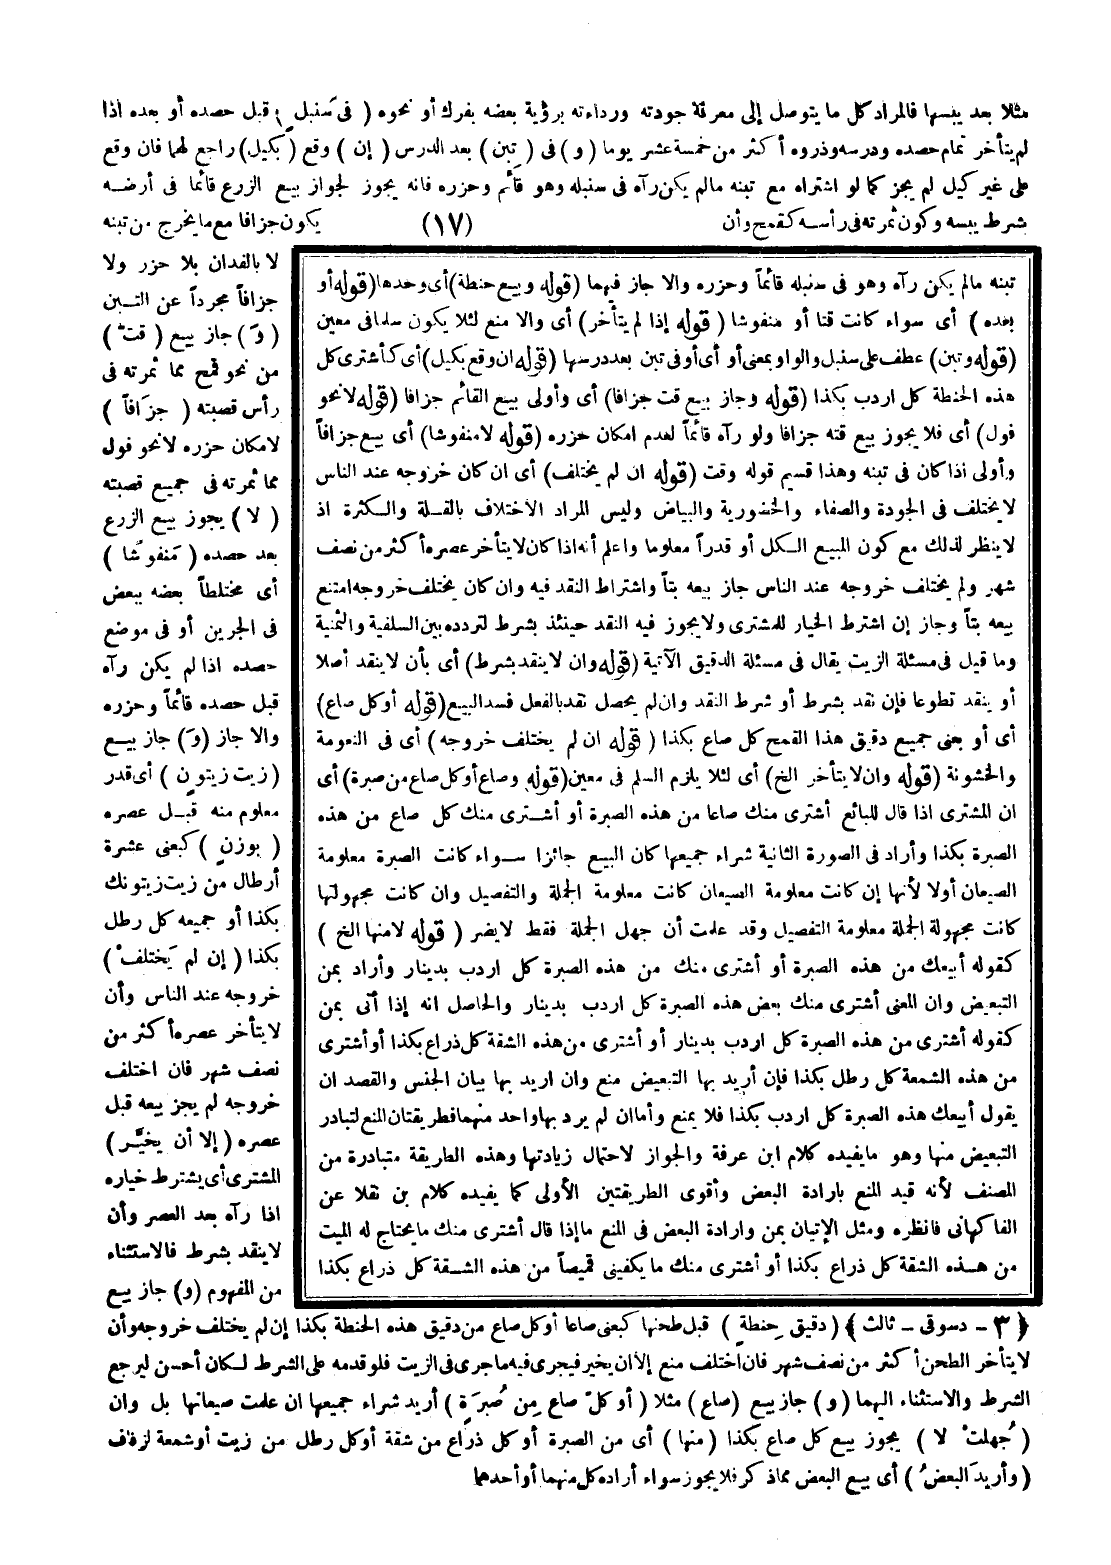 مثلا بعد يبسها فالمراد كل ما يتوصل إلى معرفة جودته ورداءته برؤية بعضه بفرك أو نحوه ( فى سَنبل ) قبل حصده أو بعده اذا
لم يتأخر تمام حصده ودرسه وذروه أكثر من خمسة عشر يوما ( و ) فى ( تبن ) بعد الدرس ( إن ) وقع ( بكيل ) راجع لهما فان وقع
على غير كيل لم يجز كما لو اشتراه مع تبنه مالم يكن رآه فى سنبله وهو قائم وحزره فانه يجوز لجواز بيع الزرع قائما فى أرضه
بشرط يبسه وكون ثمرته فى رأسه كقمح وأن (١٧) يكون جزافا مع ما يخرج من تبنه
لا بالفدان بلا حزر ولا
جزافاً مجرداً عن التبن
( وَ ) جاز بيع ( قت )
من نحو قمح مما ثمرته فى
رأس قصبته ( جزَافاً )
لامكان حزره لا نحو فول
مما ثمرته فى جميع قصبته
( لا ) يجوز بيع الزرع
بعد حصده ( مَنفوشا )
أى مختلطاً بعضه ببعض
فى الجرين أو فى موضع
حصده اذا لم يكن رآه
قبل حصده قائماً وحزره
والا جاز (وَ) جاز بيع
(زيت زيتون ) أى قدر
معلوم منه قبل عصره
( بوزنٍ ) كبعنى عشرة
أرطال من زيت زيتونك
بكذا أو جميعه كل رطل
بكذا ( إن لم يَختلف )
خروجه عند الناس وأن
لا يتأخر عصره أكثر من
نصف شهر فان اختلف
خروجه لم يجز بيعه قبل
عصره ( إلا أن يخيَّر )
المشترى أى يشترط خياره
اذا رآه بعد العصر وأن
لا ينقد بشرط فالاستثناء
من المفهوم (و) جاز بيع
تبنه مالم يكن رآه وهو فى سنبله قائماً وحزره والا جاز فيهما (قوله وبيع حنطة) أى وحدها (قوله أو
بعده ) أى سواء كانت قتا أو منفوشا ( قوله إذا لم يتأخر) أى والا منع لئلا يكون سلما فى معين
(قوله وتبن) عطف على سنبل والواو بمعنى أو أى أو فى تبن بعد درسها (قوله ان وقع بكيل) أى كأشترى كل
هذه الحنطة كل اردب بكذا (قوله وجاز بيع قت جزافا) أى وأولى بيع القائم جزافا (قوله لا نحو
فول) أى فلا يجوز بيع قته جزافا ولو رآه قائماً لعدم امكان حزره (قوله لا منفوشا) أى بيع جزافاً
وأولى اذا كان فى تبنه وهذا قسيم قوله وقت (قوله ان لم يختلف) أى ان كان خروجه عند الناس
لا يختلف فى الجودة والصفاء والخضورية والبياض وليس المراد الاختلاف بالقلة والكثرة اذ
لا ينظر لذلك مع كون المبيع الكل أو قدراً معلوما واعلم أنه اذا كان لا يتأخر عصره أكثر من نصف
شهر ولم يختلف خروجه عند الناس جاز بيعه بتاً واشتراط النقد فيه وان كان يختلف خروجه امتنع
بيعه بتاً وجاز إن اشترط الخيار للمشترى ولا يجوز فيه النقد حينئذ بشرط لتردده بين السلفية والثمنية
وما قيل فى مسئلة الزيت يقال فى مسئلة الدقيق الآتية (قوله وان لا ينقد بشرط) أى بأن لا ينقد أصلا
أو ينقد تطوعا فإن نقد بشرط أو شرط النقد وان لم يحصل نقد بالفعل فسد البيع (قوله أو كل صاع)
أى أو بعنى جميع دقيق هذا القمح كل صاع بكذا ( قوله ان لم يختلف خروجه ) أى فى النعومة
والخشونة (قوله وان لا يتأخر الخ) أى لئلا يلزم السلم فى معين (قوله وصاع أو كل صاع من صبرة) أى
ان المشترى اذا قال للبائع أشترى منك صاعا من هذه الصبرة أو أشترى منك كل صاع من هذه
الصبرة بكذا وأراد فى الصورة الثانية شراء جميعها كان البيع جائزا سواء كانت الصبرة معلومة
الصيعان أولا لأنها إن كانت معلومة الصيعان كانت معلومة الجملة والتفصيل وان كانت مجهولتها
كانت مجهولة الجملة معلومة التفصيل وقد علمت أن جهل الجملة فقط لا يضر ( قوله لا منها الخ )
كقوله أبيعك من هذه الصبرة أو أشترى منك من هذه الصبرة كل اردب بدينار وأراد بمن
التبعيض وان المعنى أشترى منك بعض هذه الصبرة كل اردب بدينار والحاصل انه إذا أتى بمن
كقوله أشترى من هذه الصبرة كل اردب بدينار أو أشترى من هذه الشقة كل ذراع بكذا أو أشترى
من هذه الشمعة كل رطل بكذا فإن أريد بها التبعيض منع وان اريد بها بيان الجنس والقصد ان
يقول أبيعك هذه الصبرة كل اردب بكذا فلا يمنع وأما ان لم يرد بها واحد منهما فطريقتان المنع لتبادر
التبعيض منها وهو ما يفيده كلام ابن عرفة والجواز لاحتمال زيادتها وهذه الطريقة متبادرة من
المصنف لأنه قيد المنع بارادة البعض وأقوى الطريقتين الأولى كما يفيده كلام بن نقلا عن
الفاكهانى فانظره ومثل الإتيان بمن وارادة البعض فى المنع ما إذا قال أشترى منك ما يحتاج له الميت
من هذه الشقة كل ذراع بكذا أو أشترى منك ما يكفينى قميصاً من هذه الشقة كل ذراع بكذا
﴿ ٣ - دسوقى - ثالث ﴾ ( دقيق حِنطةٍ ) قبل طحنها كبعنى صاعا أو كل صاع من دقيق هذه الحنطة بكذا إن لم يختلف خروجه وأن
لا يتأخر الطحن أكثر من نصف شهر فان اختلف منع إلا ان يخير فيجرى فيه ما جرى فى الزيت فلو قدمه على الشرط لكان أحسن ليرجع
الشرط والاستثناء اليهما ( و ) جاز بيع (صاع) مثلا ( أو كلّ صاع مِن صُبرَةٍ ) أريد شراء جميعها ان علمت صيعانها بل وان
( جُهلتْ لا ) يجوز بيع كل صاع بكذا ( منها ) أى من الصبرة أو كل ذراع من شقة أو كل رطل من زيت أو شمعة لزفاف
( وأريدَ البعضُ ) أى بيع البعض مما ذكر فلا يجوز سواء أراده كل منهما أو أحدهما